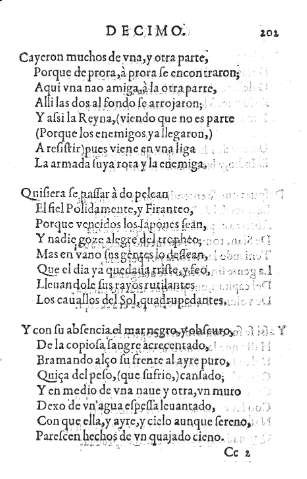 DECIMO. 202
Cayeron muchos de vna, y otra parte,
Porque de prora, à prora se encontraron;
Aqui vna nao amiga, à la otra parte,
Alli las dos al fondo se arrojaron;
Y asi la Reyna, (viendo que no es parte
(Porque los enemigos ya llegaron,)
A resistir) pues viene en vna liga
La armada suya rota y la enemiga.
Quisiera se passar à do pelean
El fiel Polidamente, y Firanteo,
Porque vencidos los Iapones sean,
Y nadie goze alegre del tropheo:
Mas en vano sus gentes lo dessean,
Que el dia ya quedaua triste, y feo,
Lleuandole sus rayos rutilantes
Los cauallos del Sol, quadrupedantes.
Y con su absencia el mar negro, y obscuro,
De la copiosa sangre acrecentado,
Bramando alço su frente al ayre puro,
Quiça del peso, (que sufrio,) cansado;
Y en medio de vna naue y otra, vn muro
Dexo de vn'agua espessa leuantado,
Con que ella, y ayre, y cielo aunque sereno,
Parescen hechos de vn quajado cieno.
Cc 2